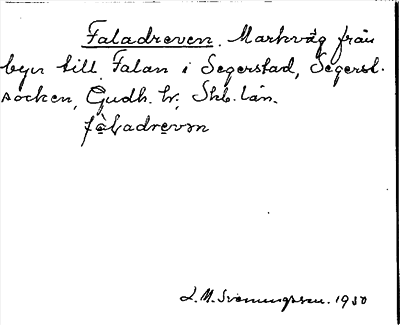 Faladreven. Markväg från
byn till Falan i Segerstad, Segerst.
socken, Gudh. hr, Skb. län.
fàladrevən
J. M. Svenungsson. 1930